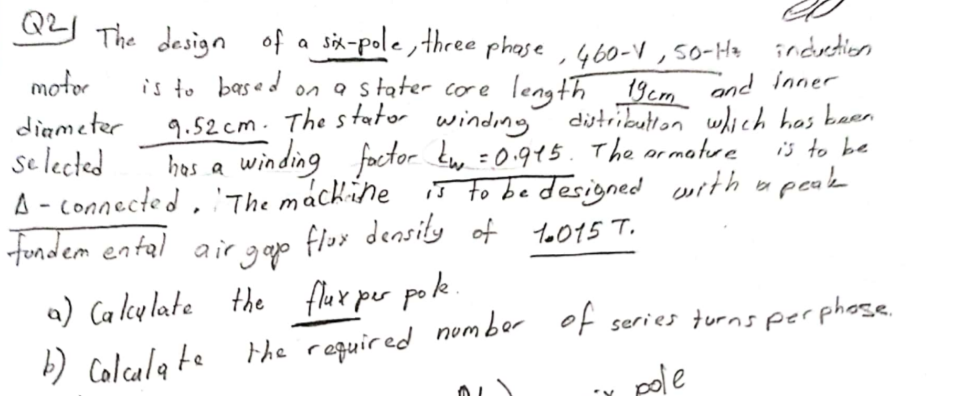 Q2) The design of a six-pole, three phase, 460-V, 50-Hz induction
motor is to based on a stater core length 19cm and inner
diameter 9.52cm. The stator winding distribution which has been
selected has a winding factor kw = 0.915. The armature is to be
Δ-connected. The machine is to be designed with a peak
fundemental air gap flux density of 1.015 T.
a) Calculate the flux per pole.
b) Calculate the required number of series turns per phase.
pole